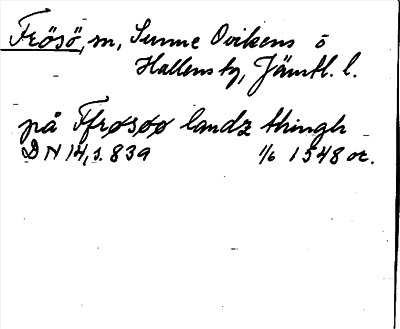 Frösö, sn, Sunne Ovikens o
Hallens tg, Jämtl. l.
på Ffrøsøø landz thingh
DN 14, s. 839 1/6 1548 or.